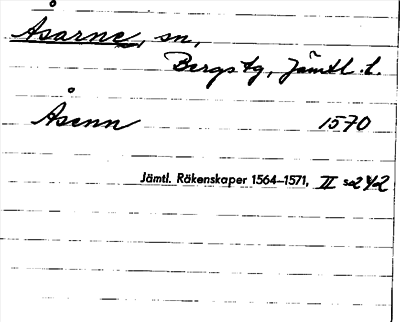 Åsarne, sn,
Bergs tg, Jämtl. l.
Åsenn 1570
Jämtl. Räkenskaper 1564–1571, II s. 242